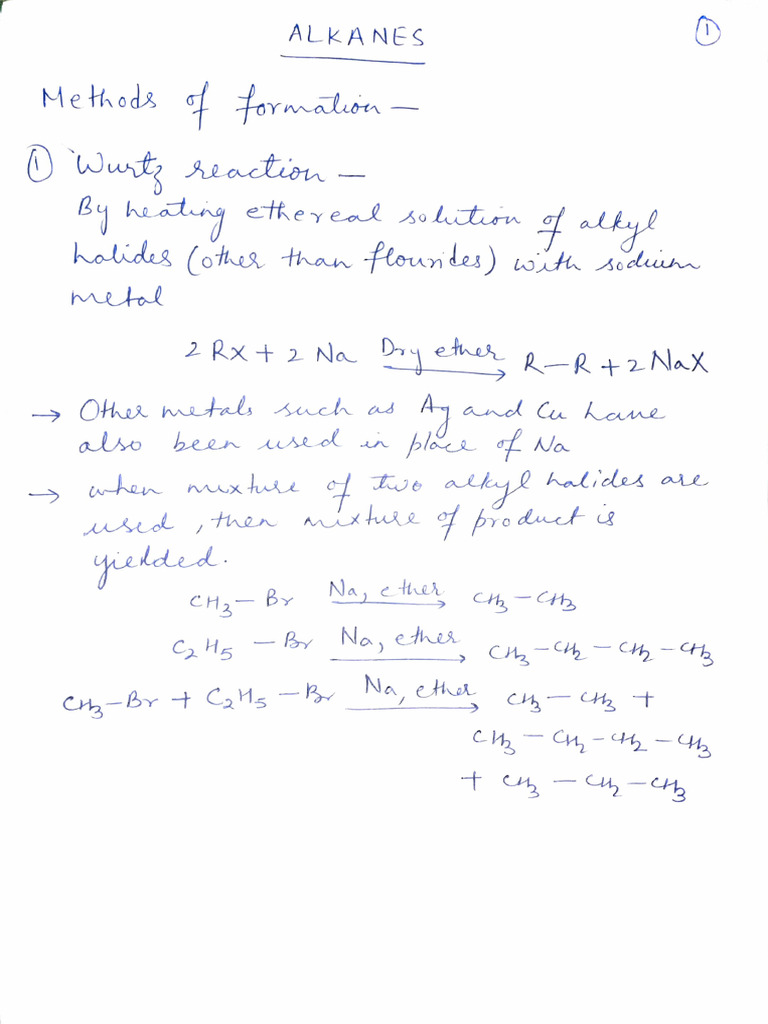 ALKANES
1
Methods of formation —
① Wurtz reaction —
By heating ethereal solution of alkyl
halides (other than flourides) with sodium
metal
2 RX + 2 Na Dry ether → R—R + 2 NaX
→ Other metals such as Ag and Cu have
also been used in place of Na
→ when mixture of two alkyl halides are
used, then mixture of product is
yielded.
CH3 — Br Na, ether → CH3 — CH3
C2H5 — Br Na, ether → CH3 — CH2 — CH2 — CH3
CH3—Br + C2H5 — Br Na, ether → CH3 — CH3 +
CH3 — CH2 — CH2 — CH3
+ CH3 — CH2 — CH3